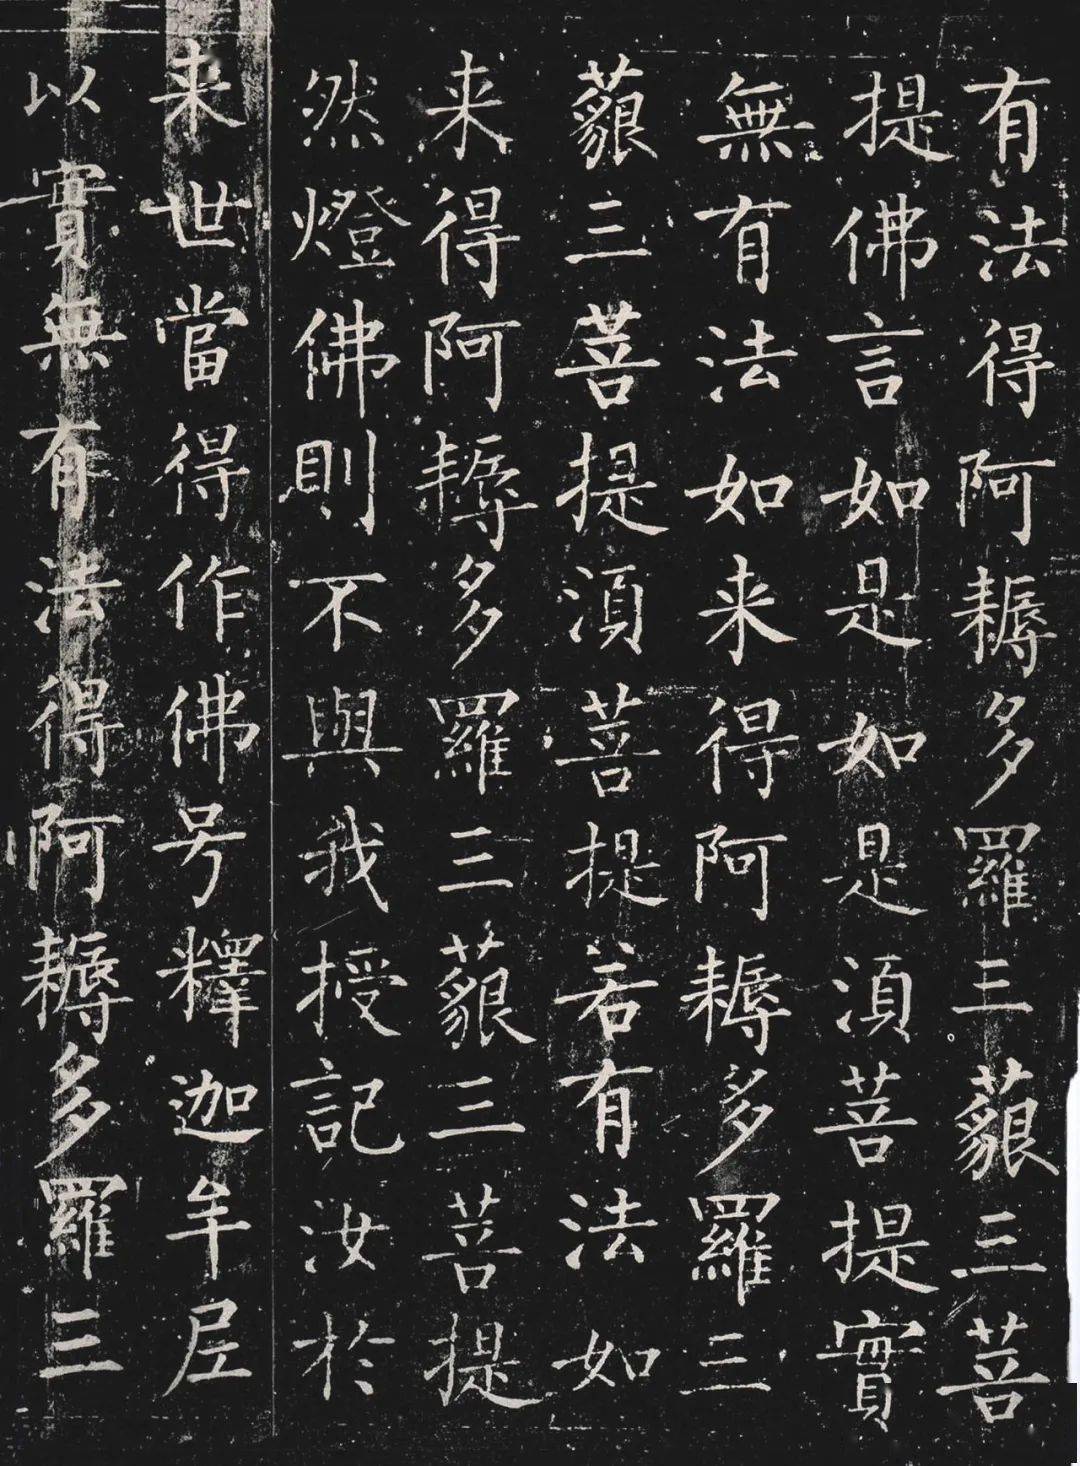 有法得阿耨多羅三藐三菩
提佛言如是如是須菩提實
無有法如来得阿耨多羅三
藐三菩提須菩提若有法如
来得阿耨多羅三藐三菩提
然燈佛則不與我授記汝於
来世當得作佛号釋迦牟尼
以實無有法得阿耨多羅三